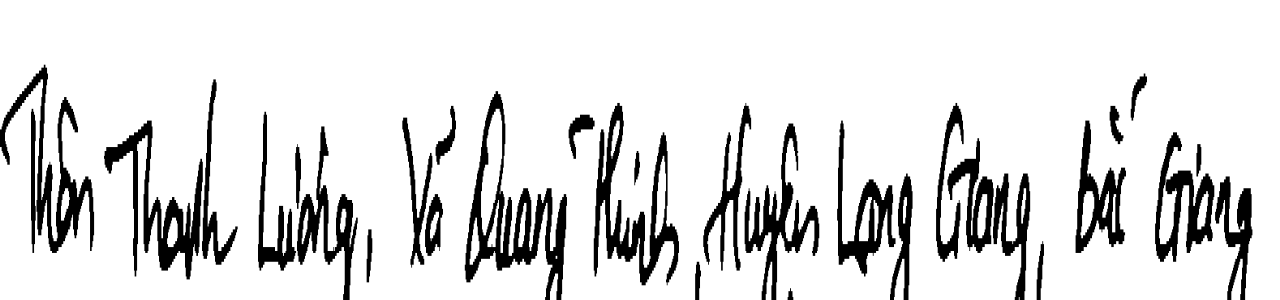 Thôn Thanh Lương, Xã Quang Thịnh, Huyện Lạng Giang, Bắc Giang